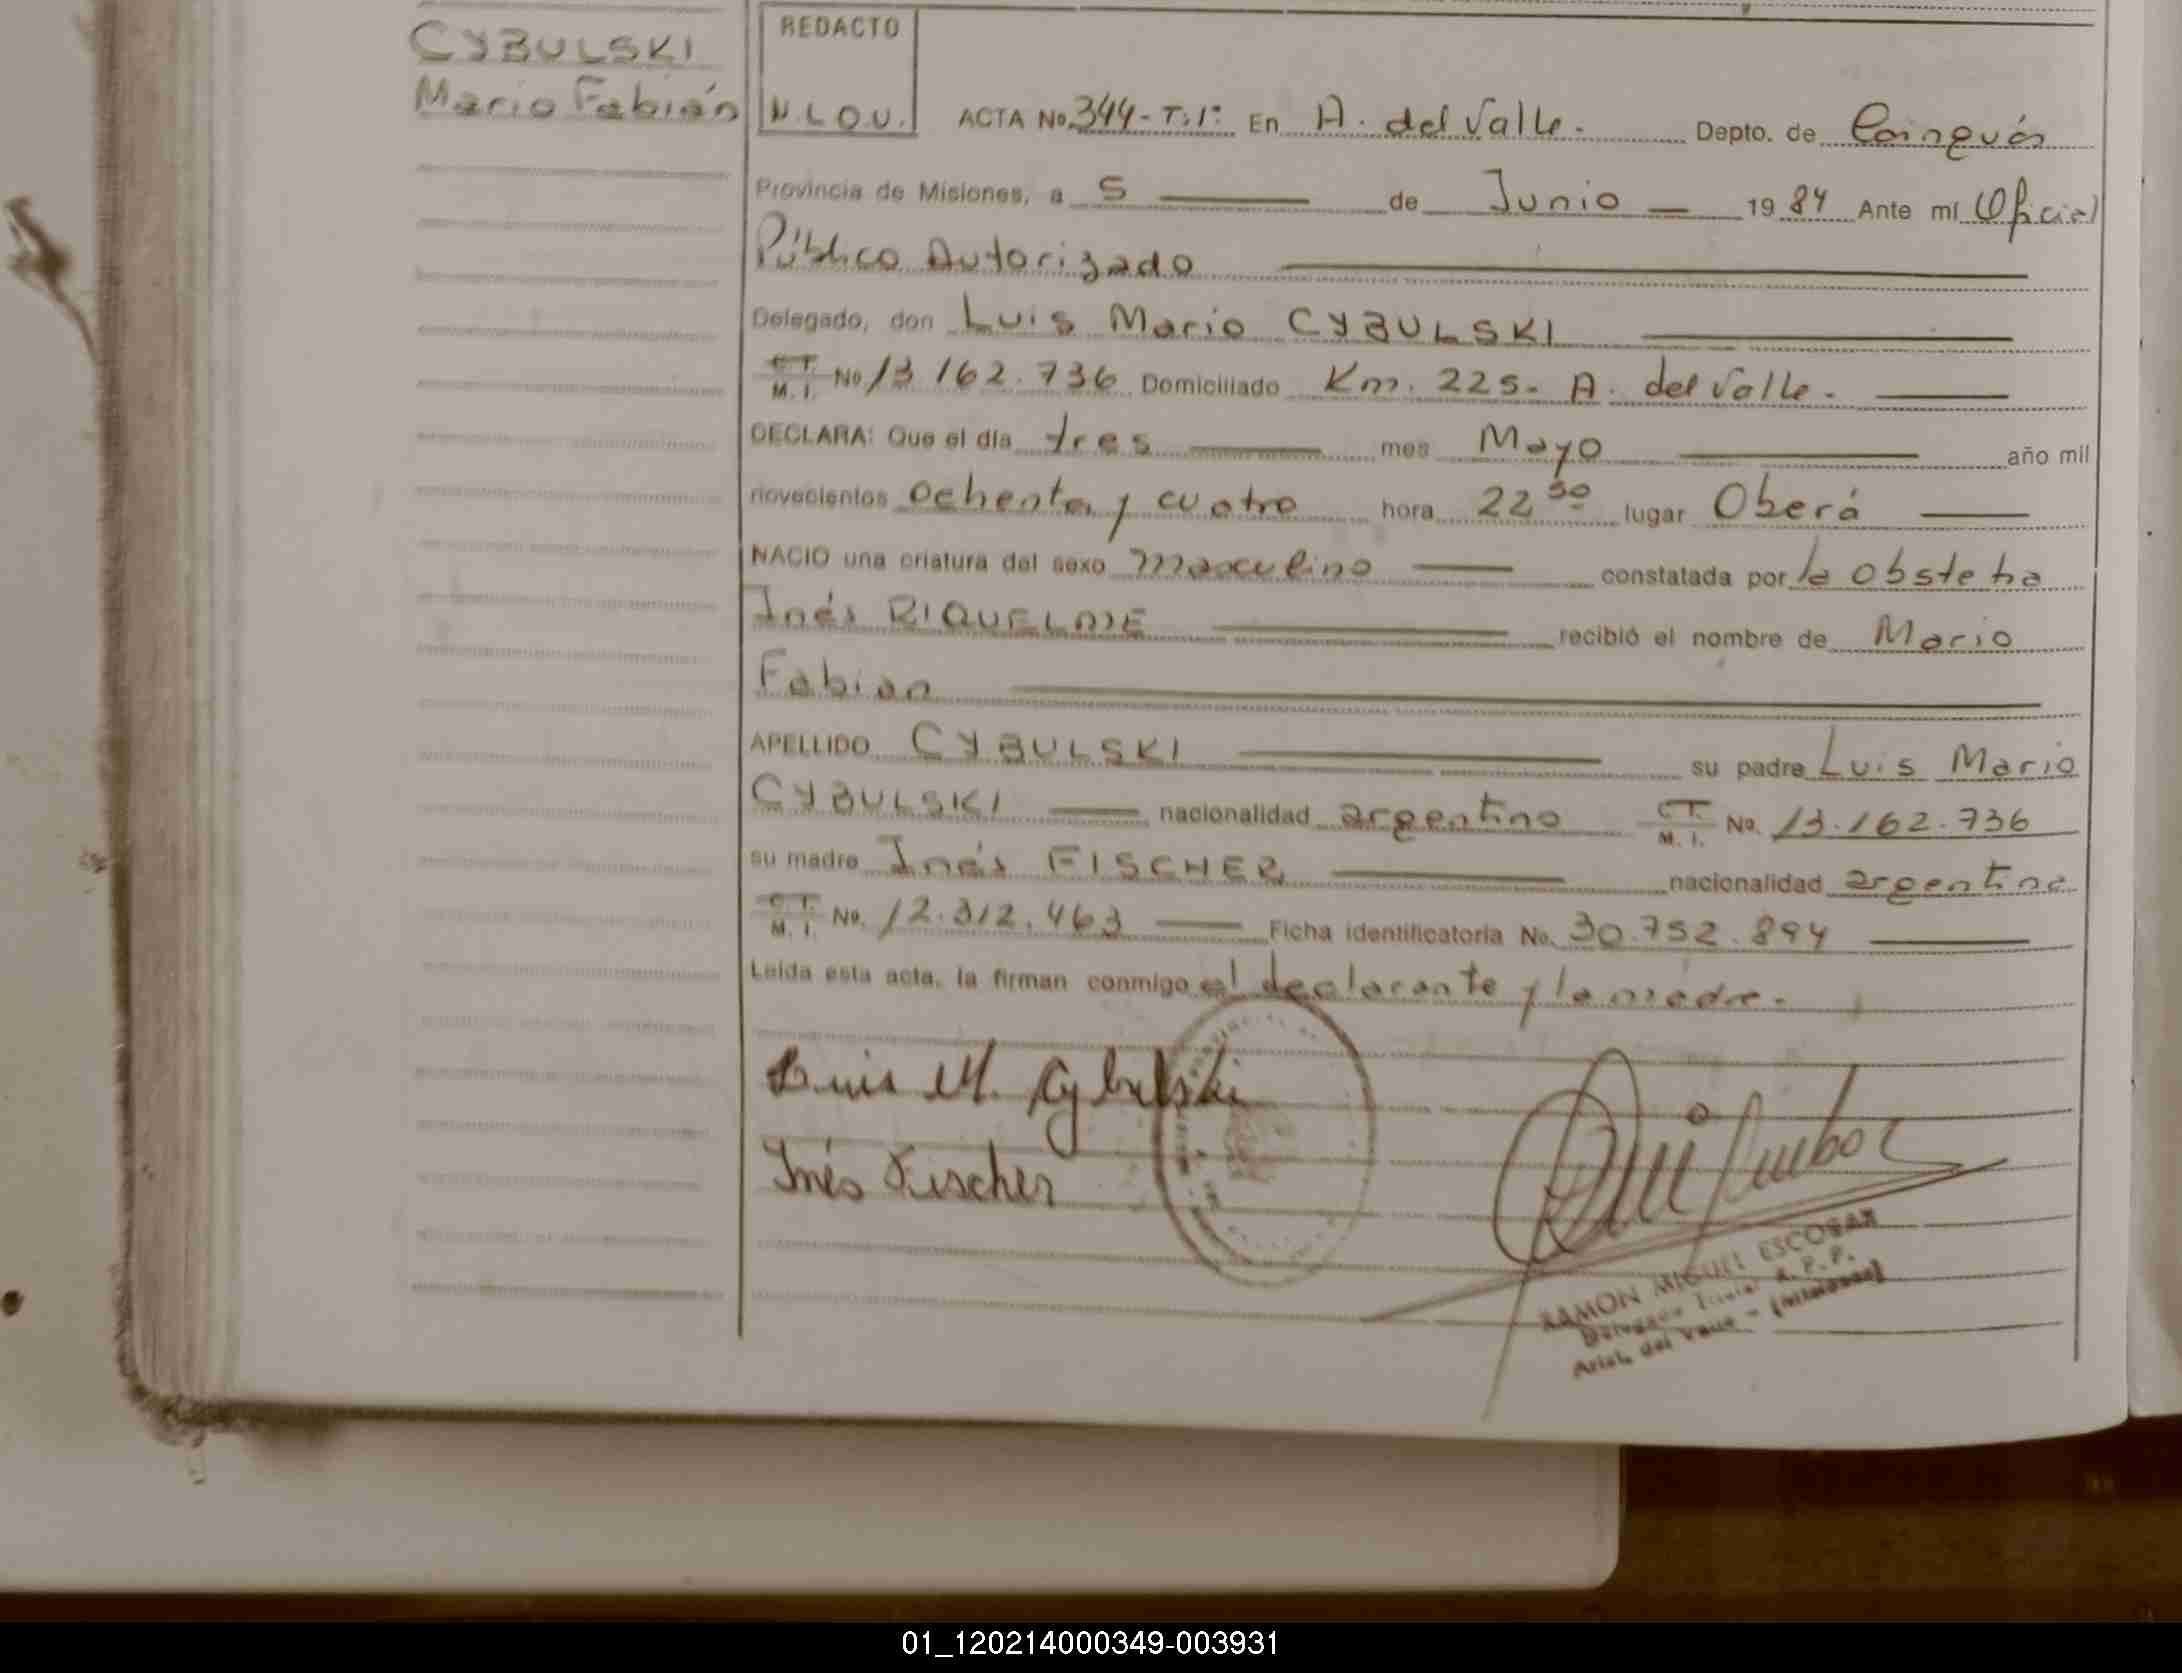 CYBULSKI
Mario Fabián
REDACTO
N.L.O.U.
ACTA No. 344-T:1º En A. del Valle. Depto. de Cainguás
Provincia de Misiones, a 5 de Junio 1984 Ante mí Oficial
Público Autorizado
Delegado, don Luis Mario CYBULSKI
C.T. M.I. No 13.162.736 Domiciliado Km. 225. A. del Valle.
DECLARA: Que el día tres mes Mayo año mil
novecientos ochenta y cuatro hora 22 30 lugar Oberá
NACIO una criatura del sexo masculino constatada por la obstetra
Inés RIQUELME recibió el nombre de Mario
Fabian
APELLIDO CYBULSKI su padre Luis Mario
CYBULSKI nacionalidad argentino C.T. M.I. No. 13.162.736
su madre Inés FISCHER nacionalidad argentina
C.T. M.I. No. 12.312.463 Ficha identificatoria No. 30.752.894
Leída esta acta, la firman conmigo el declarante y la madre.
Luis M. Cybulski
Inés Fischer
RAMON MIGUEL ESCOBAR
Delegado Titular R.P.P.
Arist. del Valle - (Misiones)
01_120214000349-003931